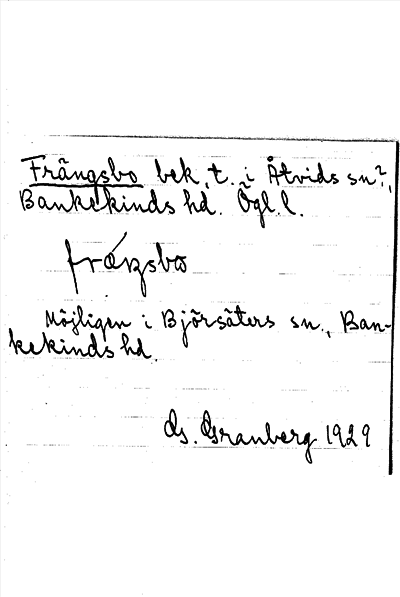 Frängsbo bek. t. i Åtvids sn?,
Bankekinds hd. Ögl. l.
fräŋsbo
Möjligen i Björsäters sn., Ban-
kekinds hd.
G. Granberg 1929